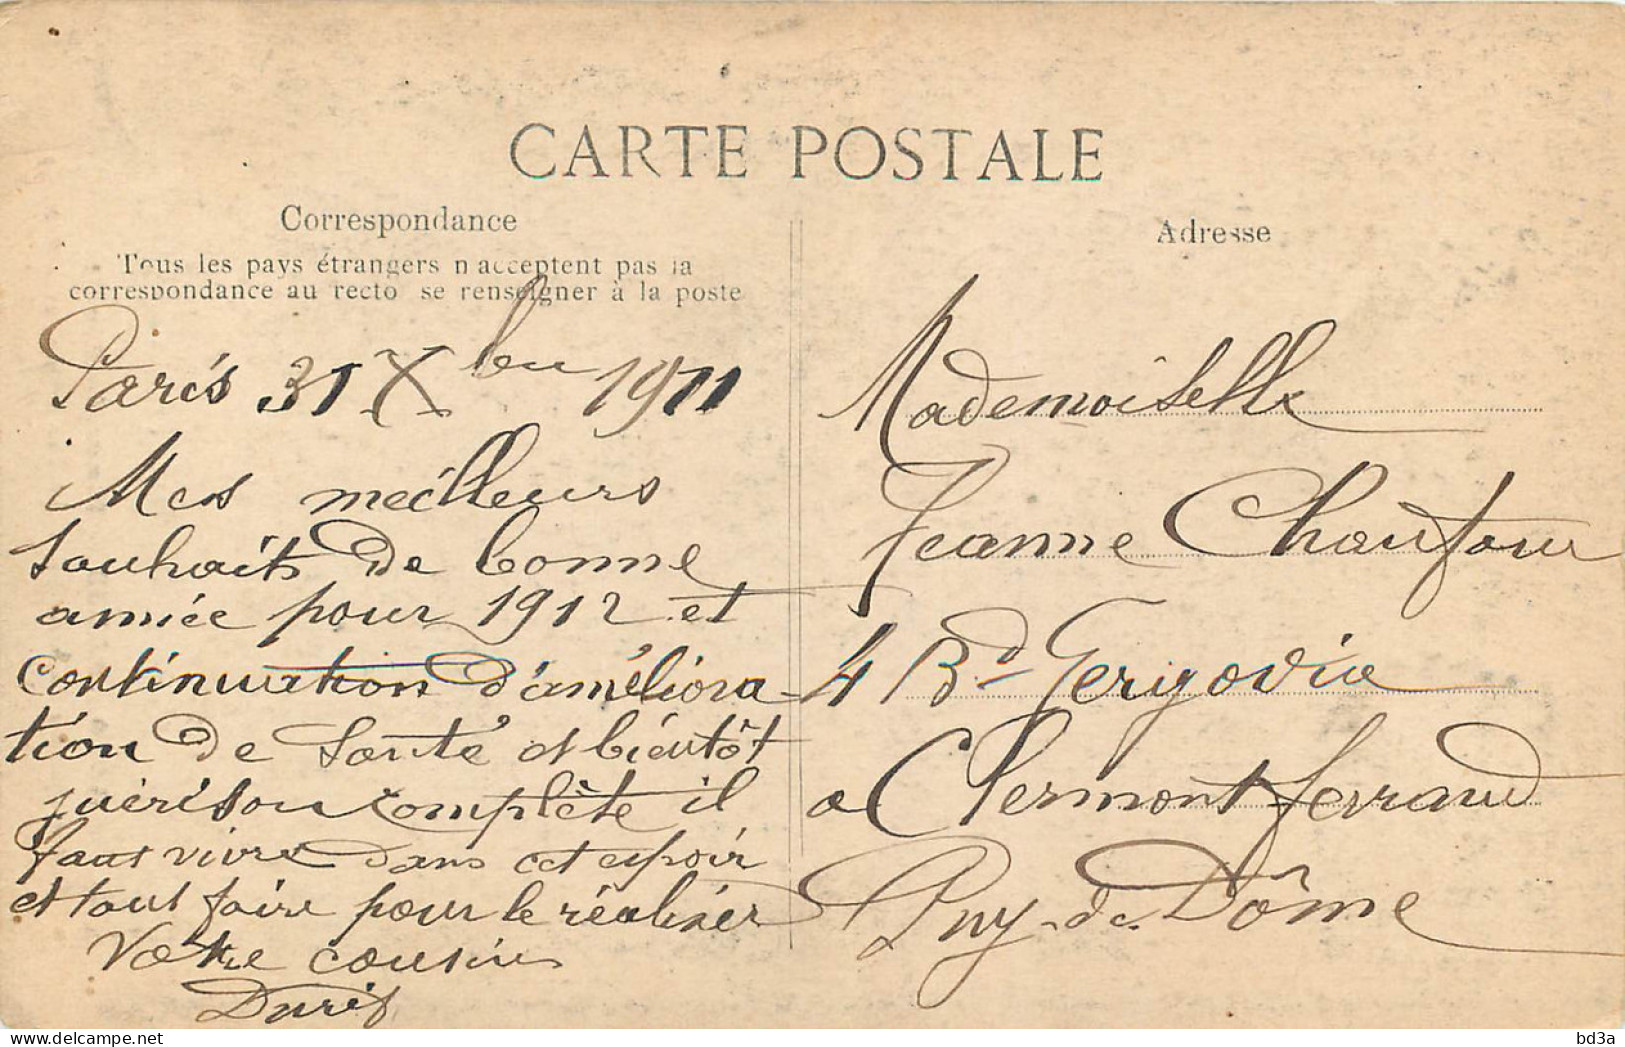 CARTE POSTALE
Correspondance
Tous les pays étrangers n'acceptent pas la
correspondance au recto se renseigner à la poste
Paris 31 Xbre 1911
Mes meilleurs
souhaits de bonne
année pour 1912 et
continuation d'améliora-
tion de santé et bientôt
guérison complète il
faut vivre dans cet espoir
et tout faire pour le réaliser
Votre cousin
Durif
Adresse
Mademoiselle
Jeanne Chaufour
4 Bd Gergovia
a Clermont ferrand
Puy-de-Dôme
bd3a